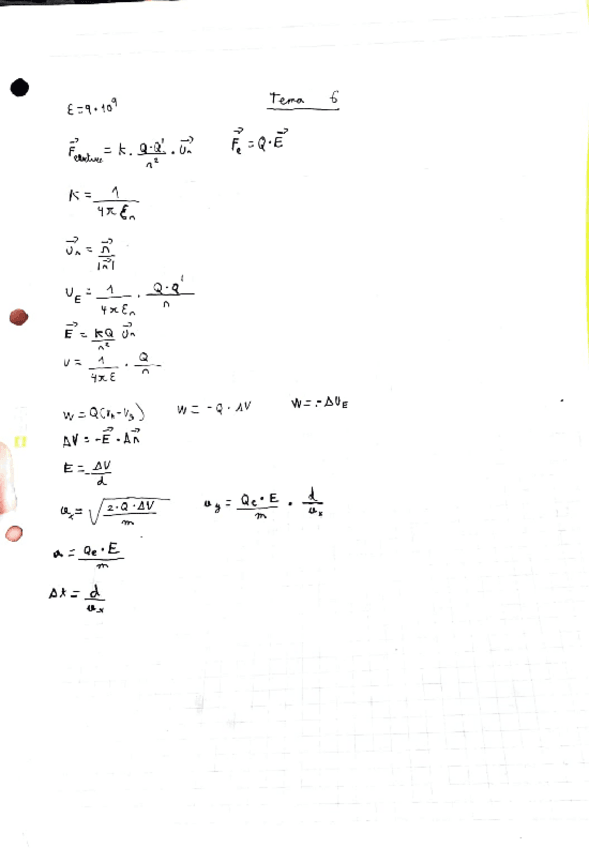 Tema 6
ε = 9·10⁹
F⃗eléctrica = k · Q·Q'/r² · u⃗r    F⃗e = Q·E⃗
K = 1/4π εn
u⃗r = r⃗/|r⃗|
UE = 1/4π εn · Q·Q'/r
E⃗ = KQ/r² u⃗r
V = 1/4πε · Q/r
W = Q(VA-VB)    W = -Q·ΔV    W = -ΔUE
ΔV = -E⃗·Δr⃗
E = -ΔV/d
vx = √(2·Q·ΔV/m)    vy = Qe·E/m · d/vx
a = Qe·E/m
Δt = d/vx